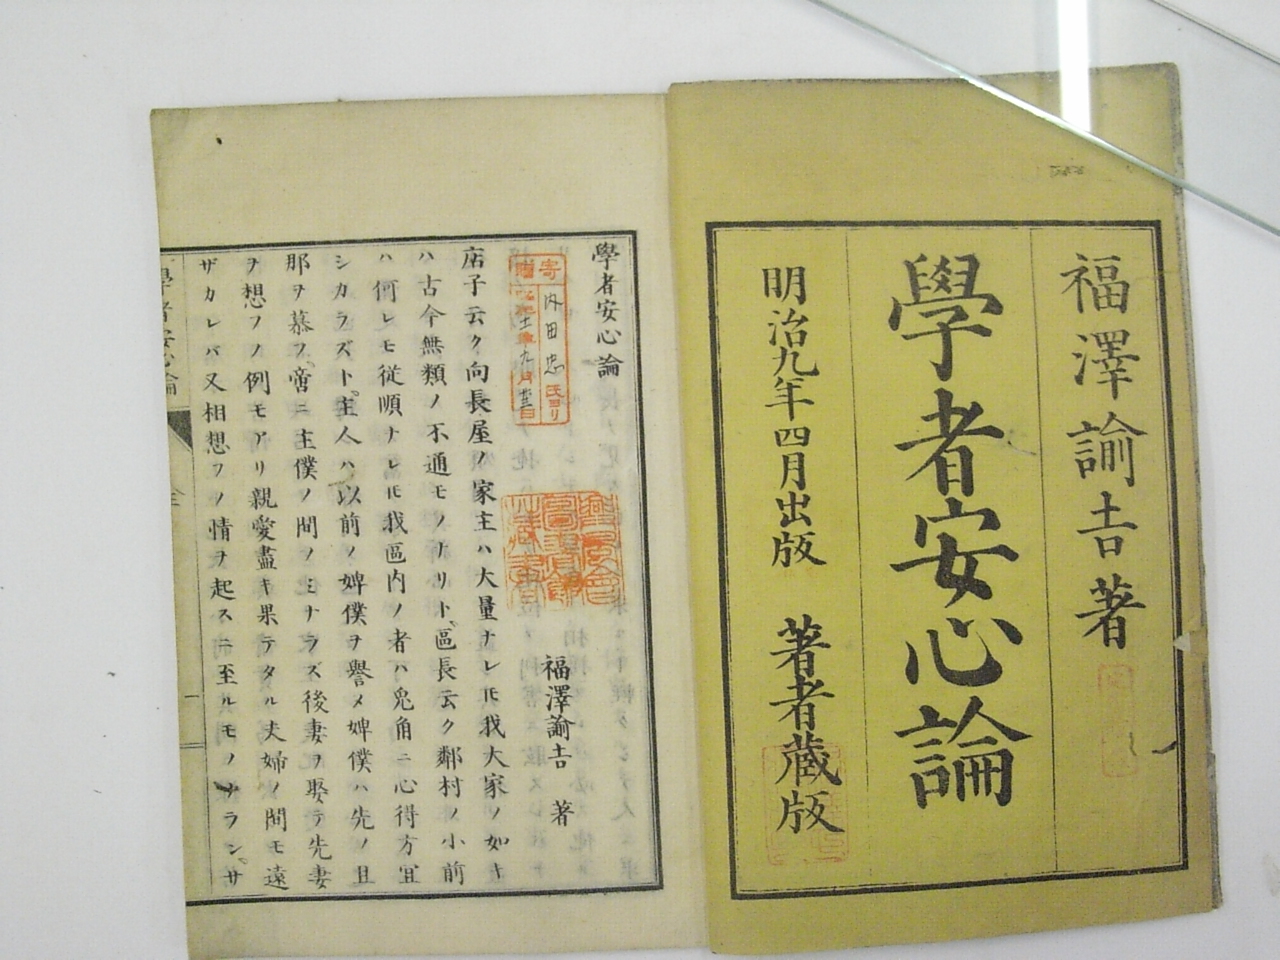 福澤諭吉著
學者安心論
明治九年四月出版　著者藏版
學者安心論
寄贈
内田忠氏ヨリ
福澤諭吉　著
店子云ク向長屋ノ家主ハ大量ナレ𪜈我大家ノ如キ
ハ古今無類ノ不通モノナリト、區長云ク鄰村ノ小前
ハ何レモ従順ナレ𪜈我區内ノ者ハ兎角ニ心得方冝
シカラズト、主人ハ以前ノ婢僕ヲ譽メ婢僕ハ先ノ且
那ヲ慕フ、啻ニ主僕ノ間ノミナラズ後妻ヲ娶テ先妻
ヲ想フノ例モアリ親愛盡キ果テタル夫婦ノ間モ遠
ザカレバ又相想フノ情ヲ起スニ至ルモノナラン、サ
學者安心論
一